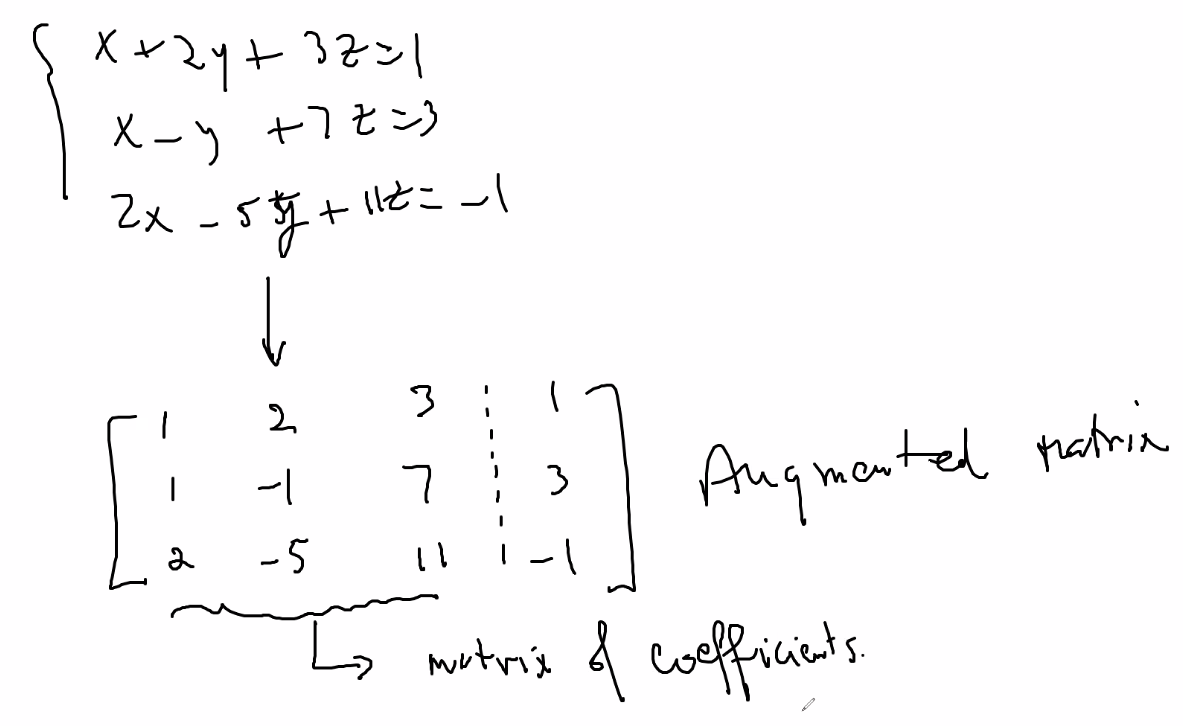 x + 2y + 3z = 1
x - y + 7z = 3
2x - 5y + 11z = -1
1 2 3 1
1 -1 7 3
2 -5 11 -1
Augmented matrix
matrix of coefficients.